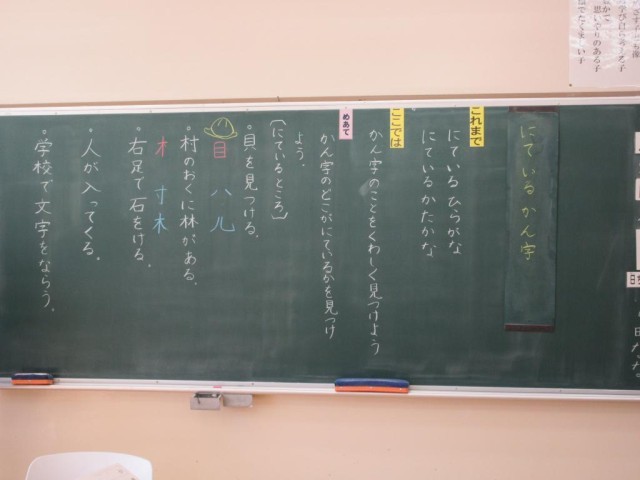 にている かん字
これまで
にている ひらがな
にている かたかな
ここでは
かん字のことをくわしく見つけよう
めあて
かん字のどこがにているかを見つけ
よう。
〔にているところ〕
・貝を見つける。
目 ハ 儿
・村のおくに林がある。
木 寸 木
・右足で石をける。
・人が入ってくる。
・学校で文字をならう。